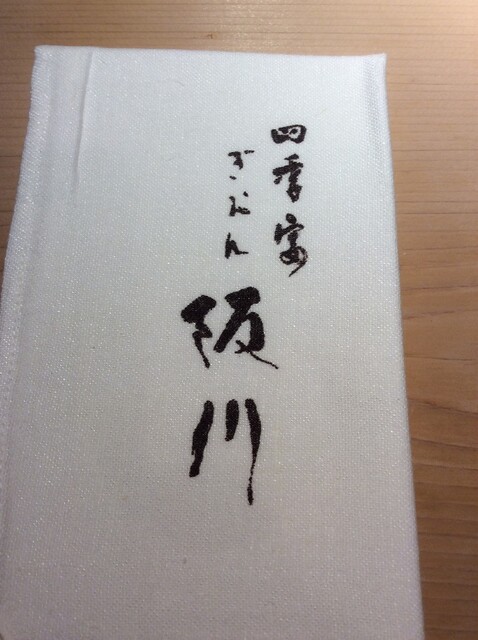 四季の宴
ぎおん
阪川